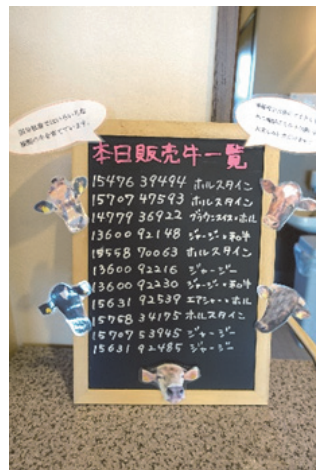 国分牧場ではいろいろな
種類の牛を育てています。
本日販売牛一覧
15476 39494 ホルスタイン
15707 47593 ホルスタイン
14779 36922 ブラウンスイス×ホル
13600 92148 ジャージー×和牛
15558 70063 ホルスタイン
13600 92216 ジャージー
13600 92230 ジャージー×和牛
15631 92539 エアシャー×ホル
15758 34175 ホルスタイン
15707 53945 ジャージー
15631 92485 ジャージー